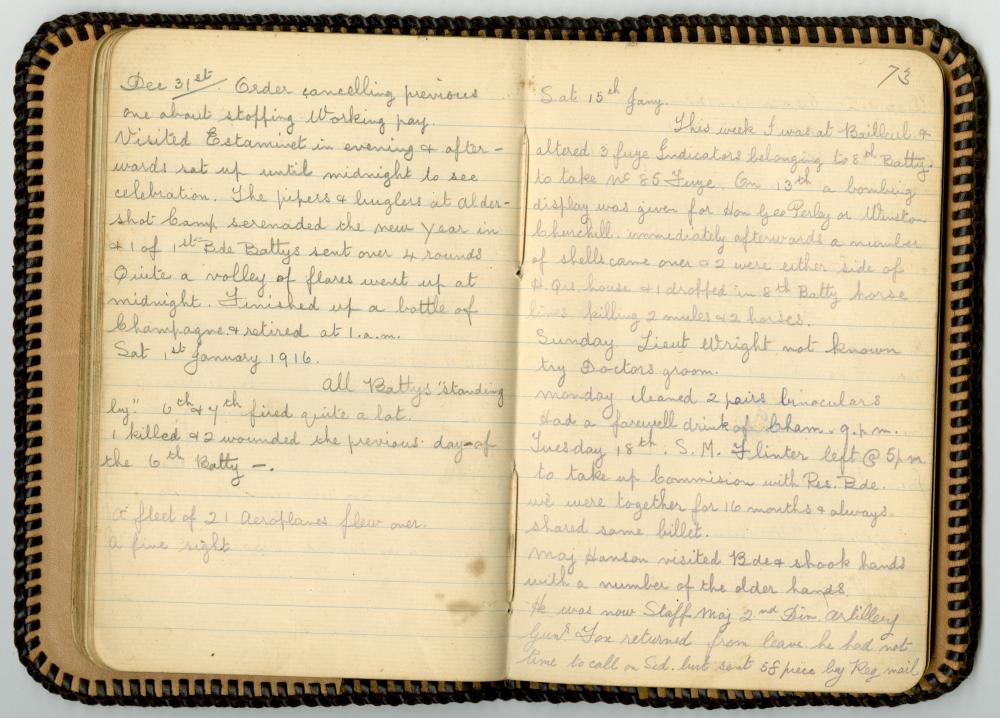 Dec 31st. Order cancelling previous
one about stopping Working pay.
Visited Estaminet in evening & after-
wards sat up until midnight to see
celebration. The pipers & buglers at Alder-
shot Camp serenaded the new year in
& 1 of 1st Bde Battys sent over 4 rounds
Quite a volley of flares went up at
midnight. Finished up a bottle of
Champagne & retired at 1.a.m.
Sat 1st January 1916.
All Battys "standing
by." 6th & 7th fired quite a lot.
1 killed & 2 wounded the previous day of
the 6th Batty -.
A fleet of 21 Aeroplanes flew over.
A fine sight
73
Sat 15th Jany.
This week I was at Bailleul &
altered 3 fuze Indicators belonging to 8th Batty.
to take No 85 Fuze. On 13th a bombing
display was given for Hon Geo Perley or Winston
Churchill. immediately afterwards a number
of shells came over & 2 were either side of
H.Qrs. house & 1 dropped in 8th Batty horse
lines killing 2 mules & 2 horses.
Sunday Lieut Wright not known
try Doctors groom.
Monday cleaned 2 pairs binoculars
Had a farewell drink of Cham. 9.p.m.
Tuesday 18th. S.M. Flinter left @ 5pm
to take up Commision with Res. Bde.
we were together for 16 months & always
shared same billet.
Maj Hanson visited Bde & shook hands
with a number of the older hands.
He was now Staff Maj 2nd Divn. Artillery
Gunr Fox returned from leave. he had not
time to call on Sid. but sent 5f piece by Reg mail